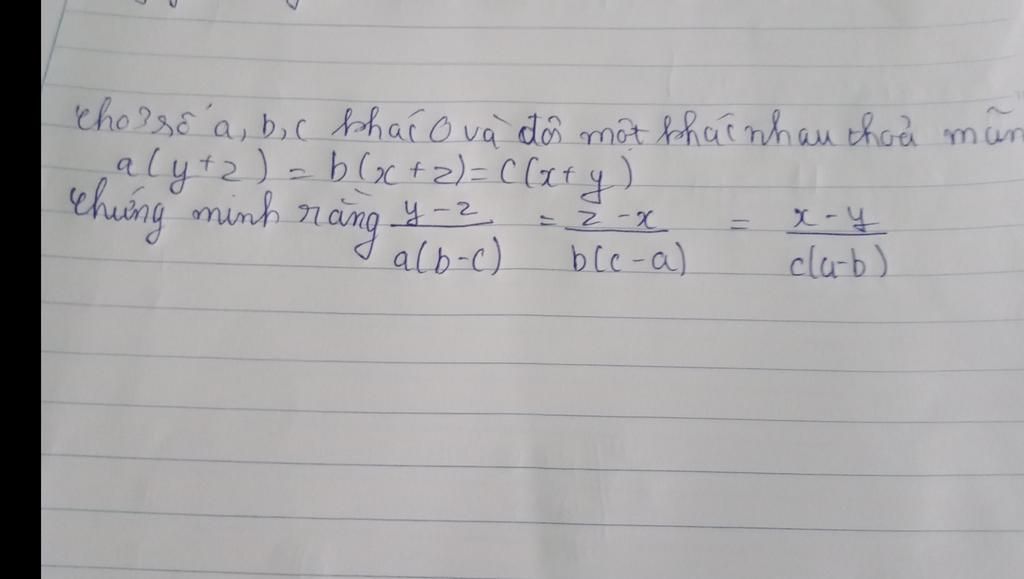 cho 3 số a, b, c khác 0 và đôi một khác nhau thoả mãn
a(y+z) = b(x+z) = c(x+y)
chứng minh rằng y-z/a(b-c) = z-x/b(c-a) = x-y/c(a-b)